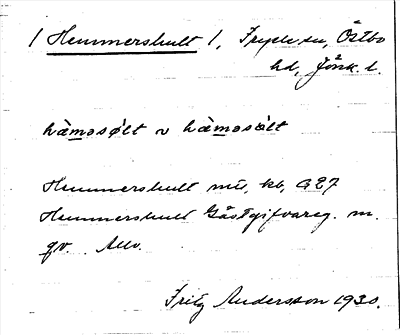 / Hemmershult /, Fryele sn, Östbo
hd, Jönk. l.
hȧmasølt v hȧmasölt
Hemmershult mü, kb, G27
Hemmershult Gästgifvareg. m.
qv. Allv.
Fritz Andersson 1930.